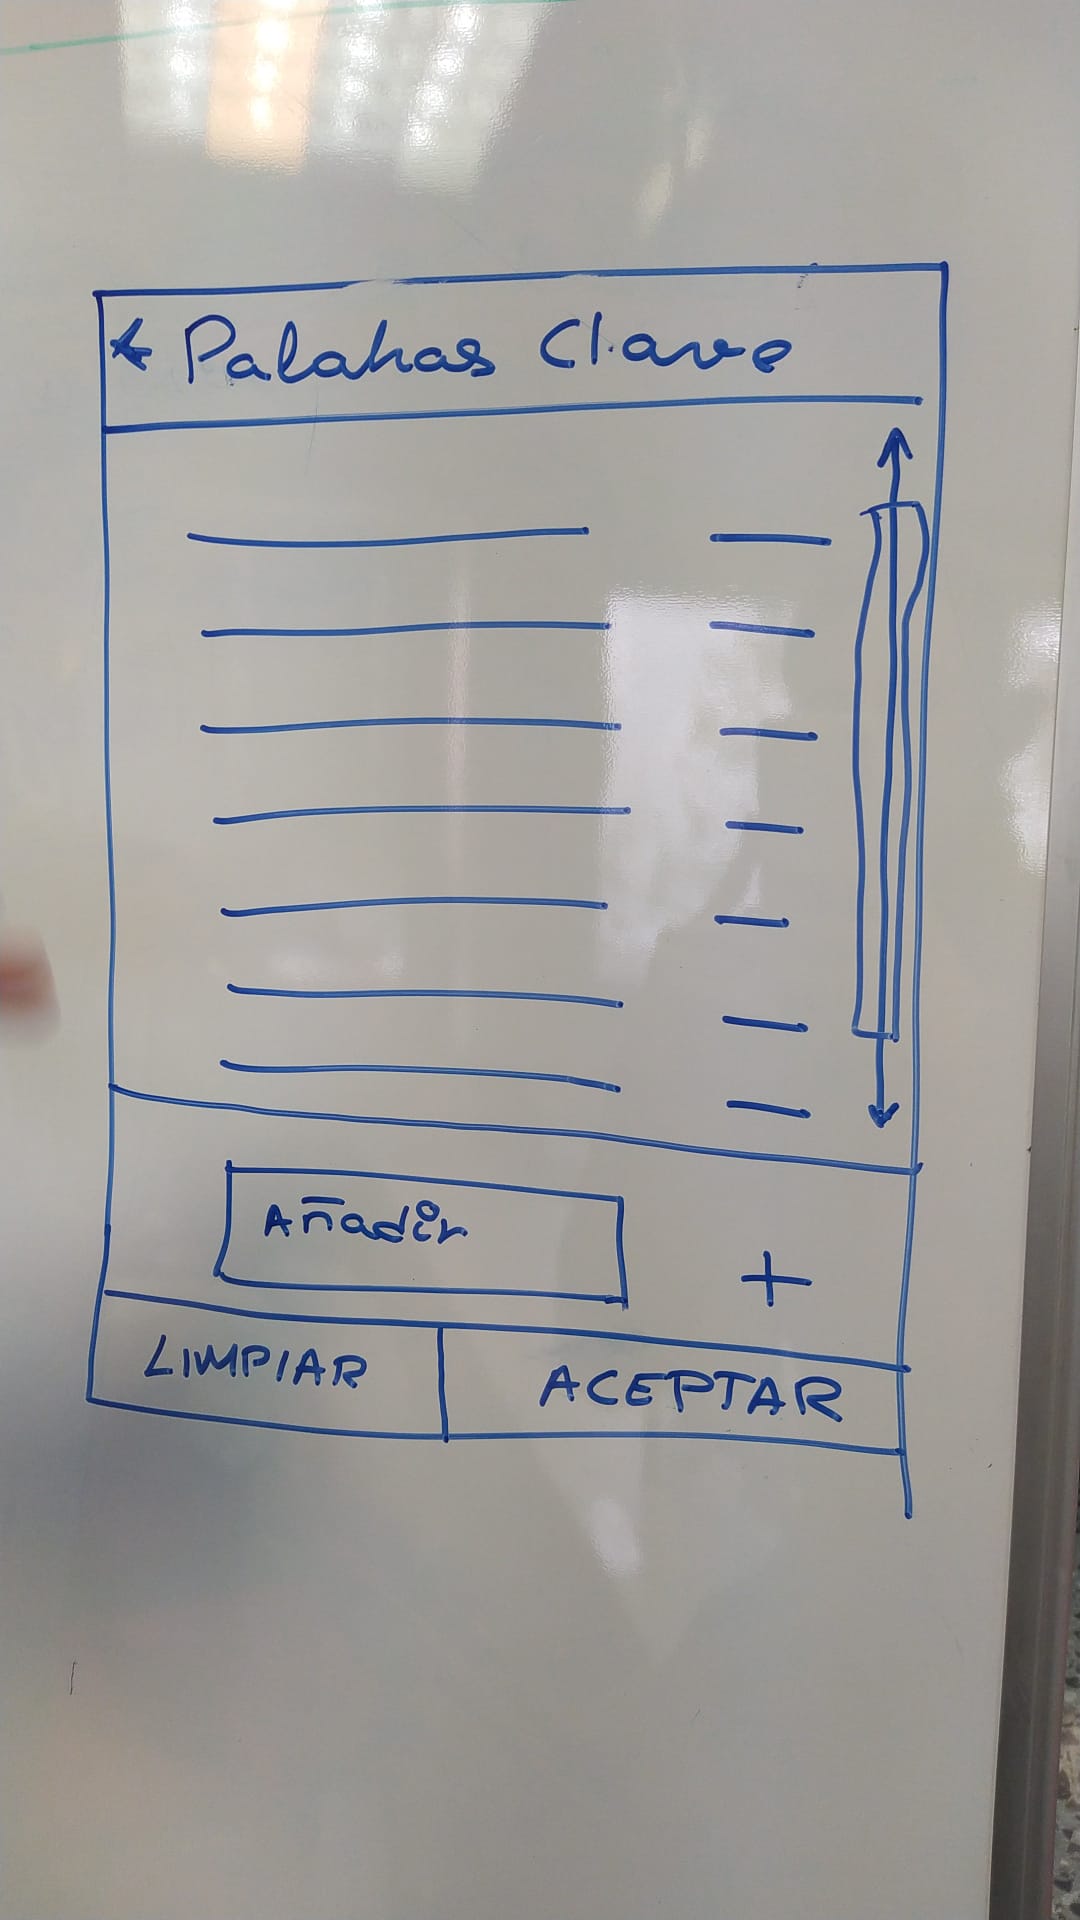 ← Palabras Clave
Añadir +
LIMPIAR ACEPTAR